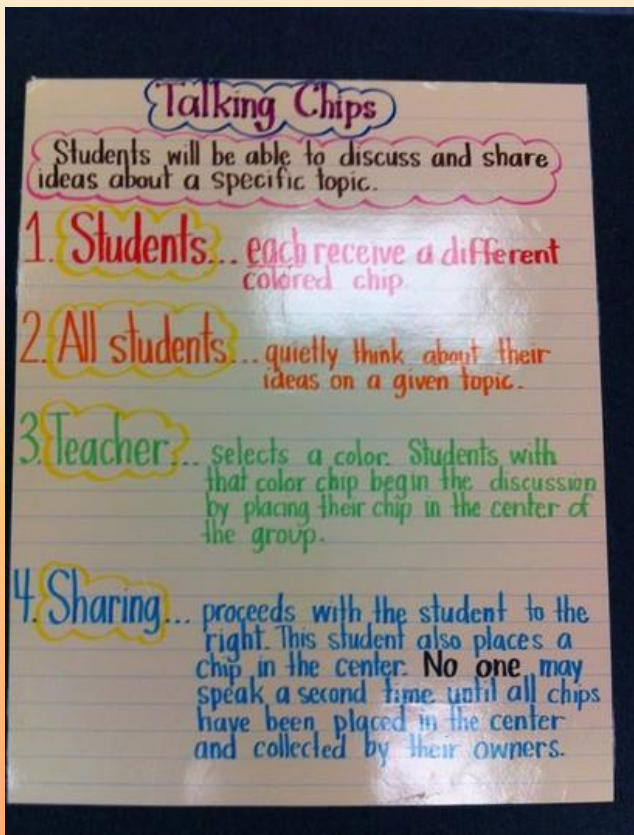 Talking Chips
Students will be able to discuss and share
ideas about a specific topic.
1. Students... each receive a different
colored chip.
2. All students... quietly think about their
ideas on a given topic.
3. Teacher... selects a color. Students with
that color chip begin the discussion
by placing their chip in the center of
the group.
4. Sharing... proceeds with the student to the
right. This student also places a
chip in the center. No one may
speak a second time until all chips
have been placed in the center
and collected by their owners.